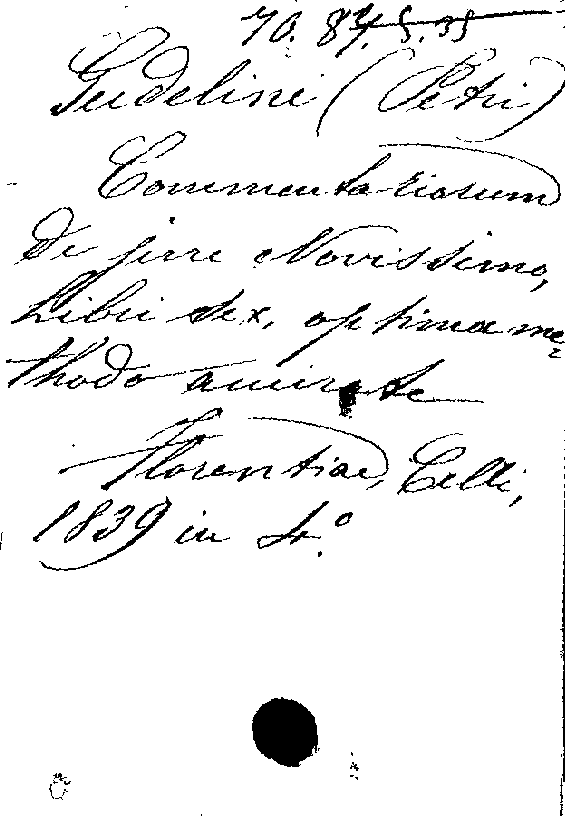 70. 84. 5. 35
Gudelini (Petri)
Commentariorum
de jure Novissimo,
Libri sex, optima me-
thodo
Florentiae, Celli,
1839 in 4.º